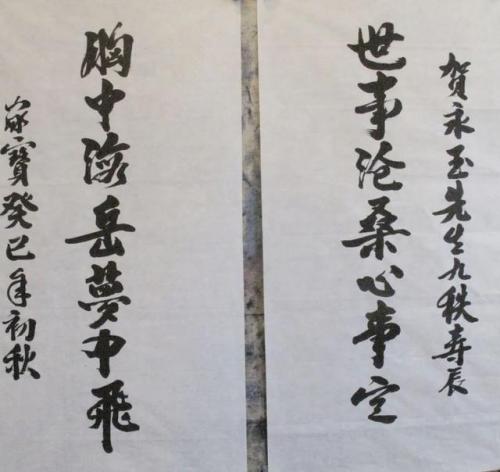 贺永玉先生九秩寿辰
世事沧桑心事定
胸中海岳梦中飞
家宝癸巳年初秋